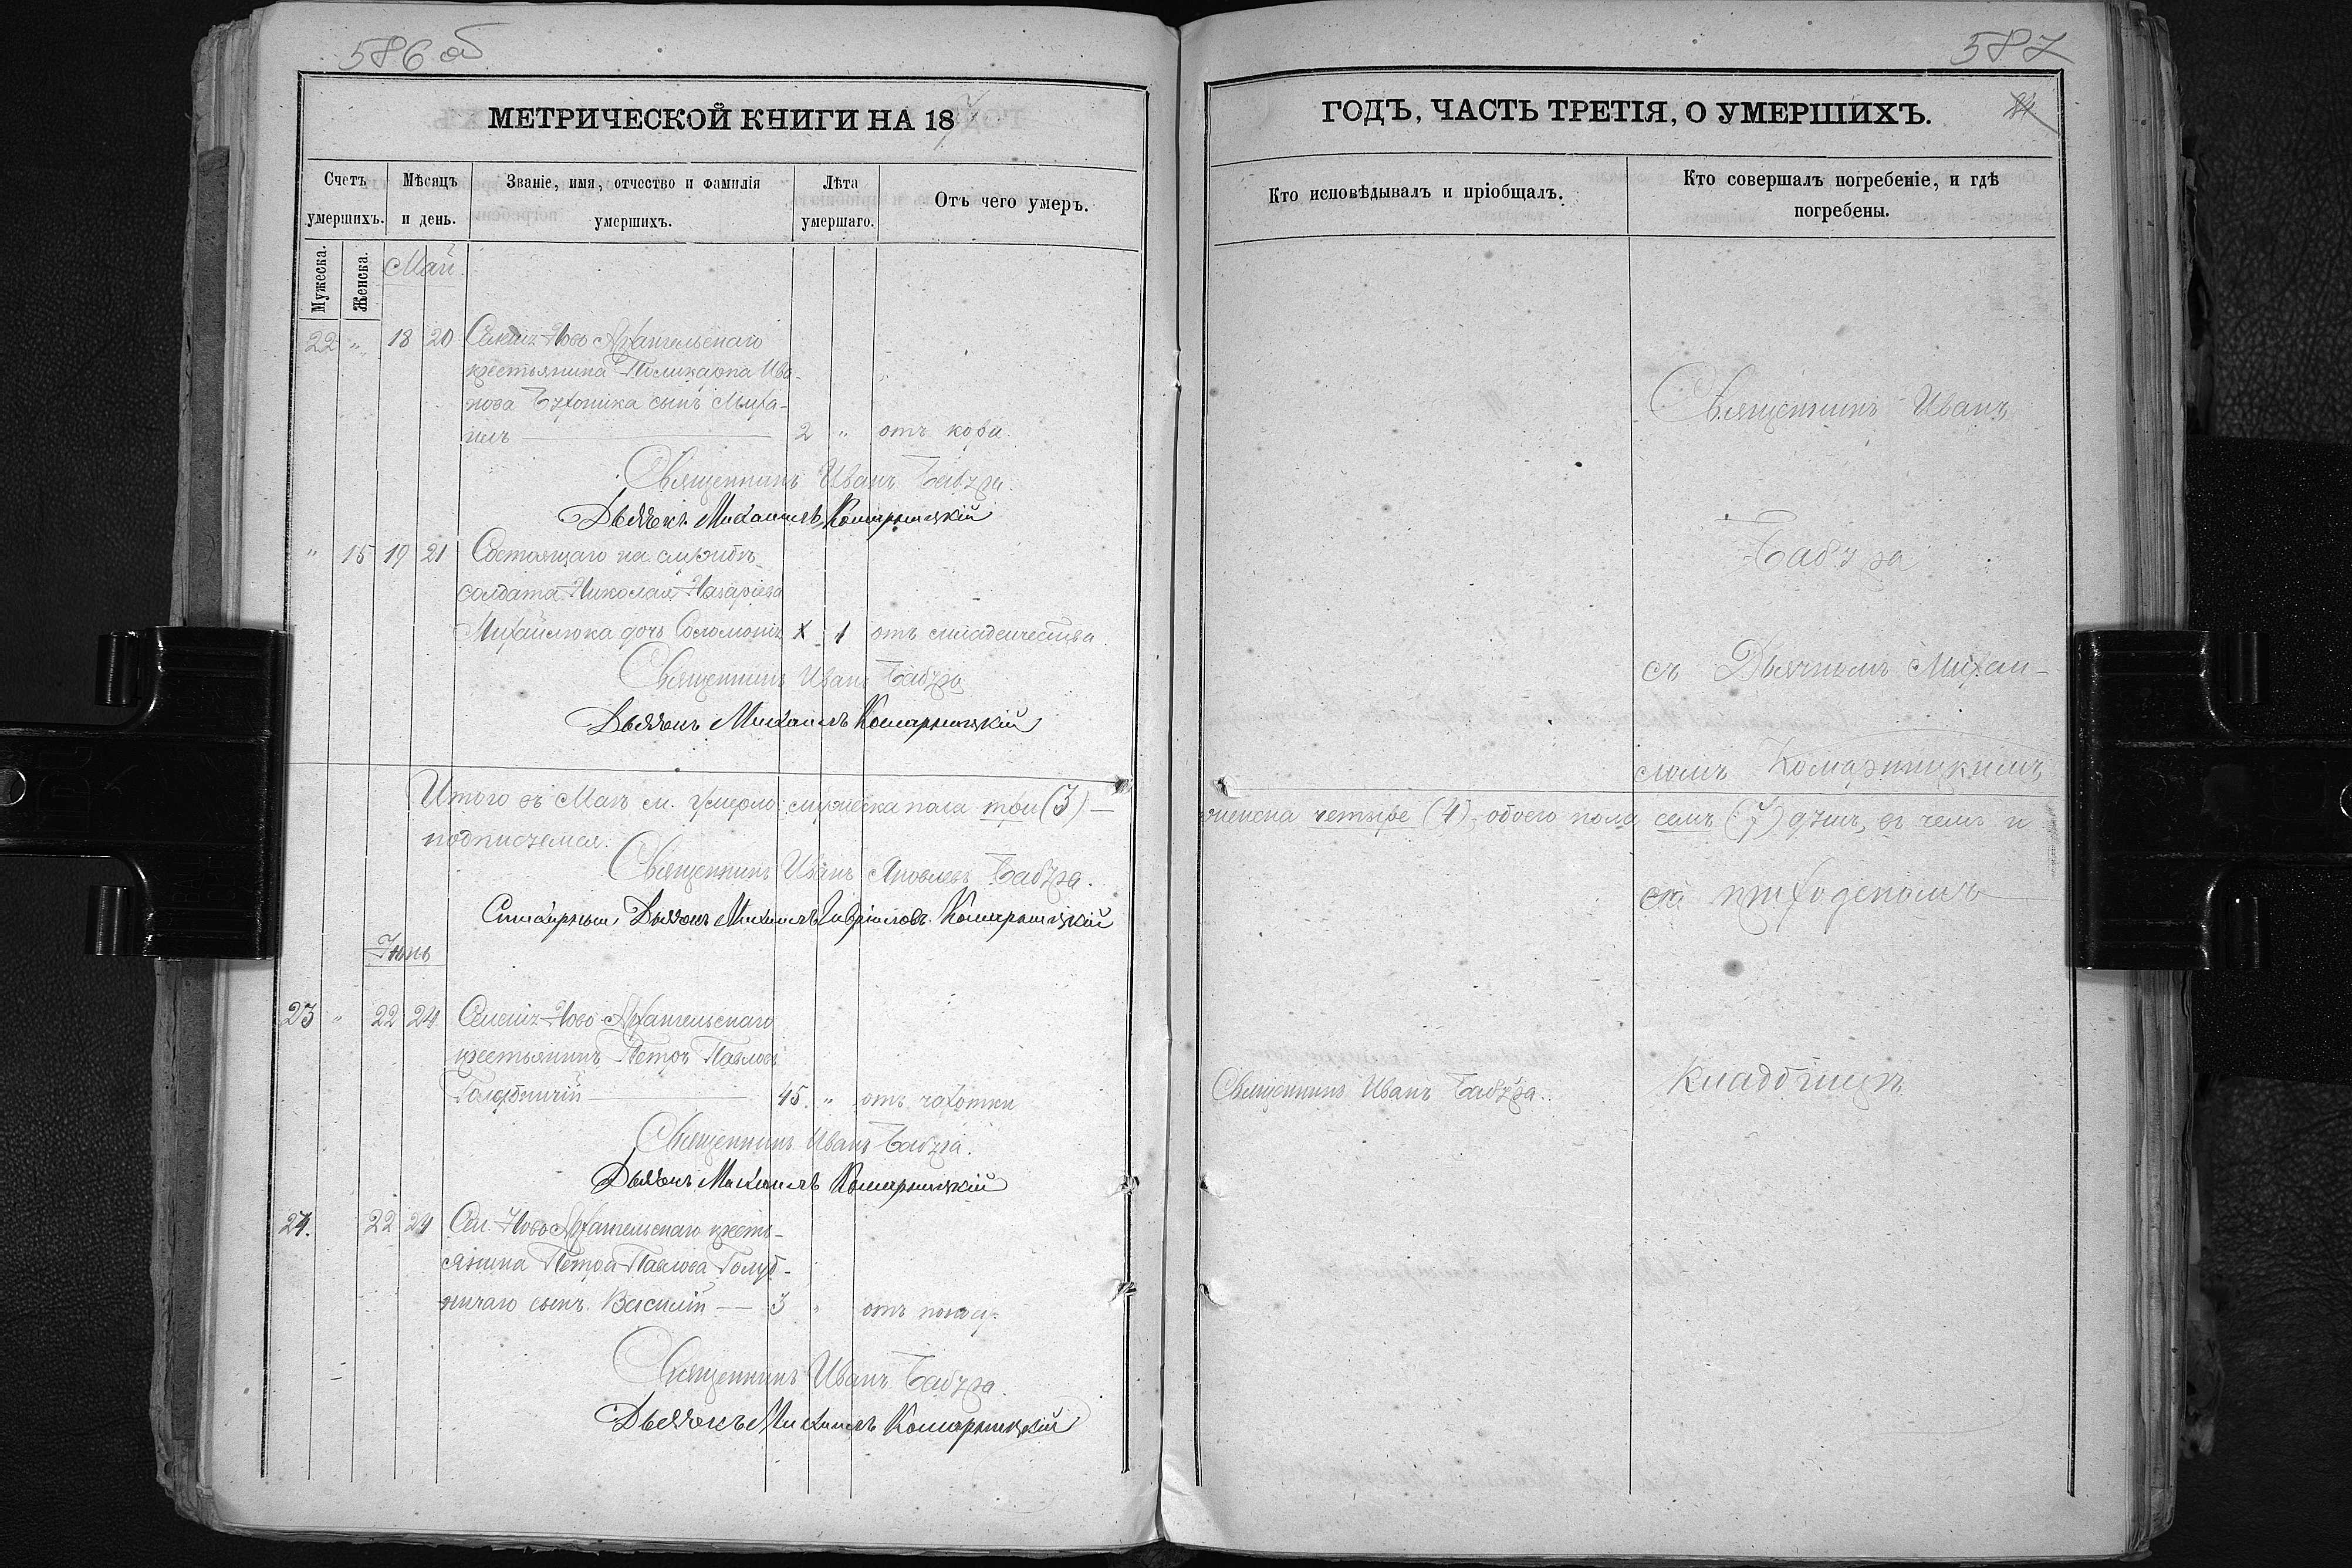 586 об
МЕТРИЧЕСКОЙ КНИГИ НА 18
Счетъ умершихъ.
Мѣсяцъ и день.
Званіе, имя, отчество и фамилія умершихъ.
Лѣта умершаго.
Отъ чего умеръ.
Мужеска.
Женска.
Май
22 " 18 20 Селенія Ново Архангельскаго
крестьянина Поликарпа Ива-
нова сынъ Миха-
илъ 2 " отъ кора.
Священникъ Иванъ Бабура.
Дьячекъ Михаилъ Комарницкій
" 15 19 21 Состоящаго на службѣ
солдата Николая Назаріева
Михайлюка дочь Соломонія 1 отъ младенчества
Священникъ Иванъ Бабура
Дьячекъ Михаилъ Комарницкій
Итого въ Маѣ м. умерло: мужеска пола три (3) —
подписуемся.
Священникъ Иванъ Яковлевъ Бабура.
Дьячекъ Михаилъ Гавріиловъ Комарницкій
Іюнь
23 " 22 24 Селенія Ново Архангельскаго
крестьянинъ Петръ Павловъ
Голубничій 45. " отъ чахотки
Священникъ Иванъ Бабура.
Дьячекъ Михаилъ Комарницкій
24. 22 24 Сел. Ново Архангельскаго кресть-
янина Петра Павлова Голуб-
ничаго сынъ Василій — 3 " отъ
Священникъ Иванъ Бабура.
Дьячекъ Михаилъ Комарницкій
587
ГОДЪ, ЧАСТЬ ТРЕТІЯ, О УМЕРШИХЪ.
Кто исповѣдывалъ и пріобщалъ.
Кто совершалъ погребеніе, и гдѣ погребены.
Священникъ Иванъ
Бабура
съ Дьячкомъ Михаи-
ломъ Комарницкимъ
женска четыре (4), обоего пола семь (7) душъ, въ чемъ и
на приходскомъ
Священникъ Иванъ Бабура.
Кладбищѣ